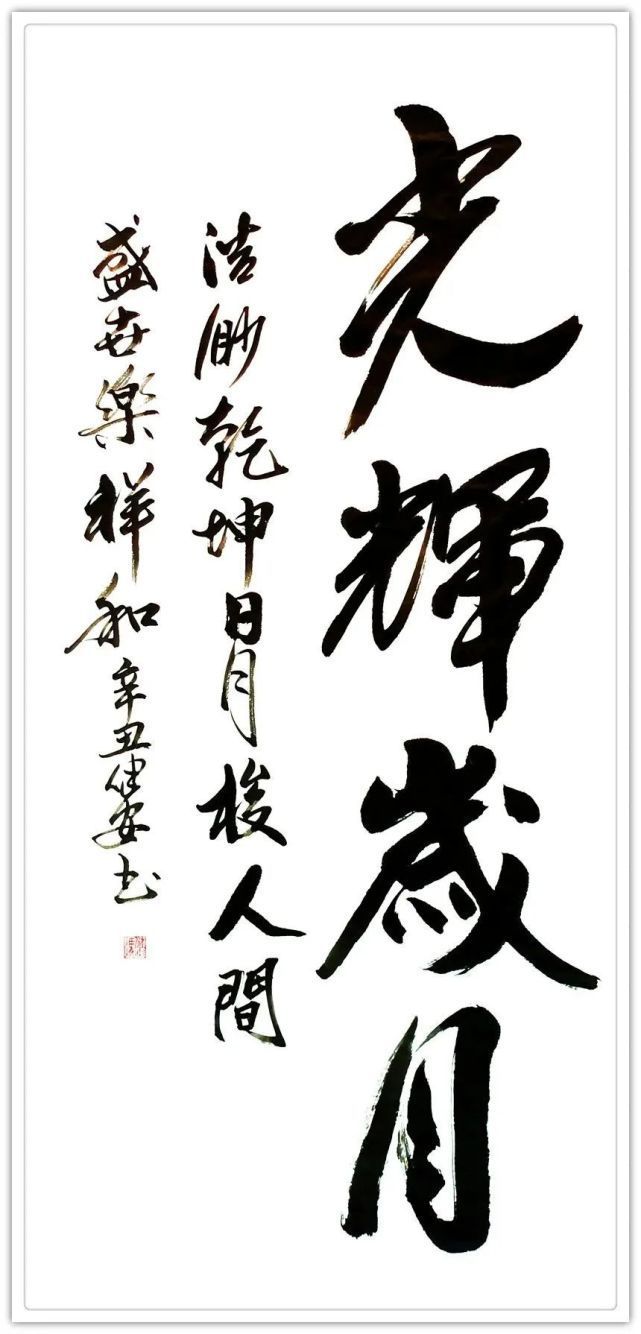 光輝歲月
浩渺乾坤日月梭人間
盛世樂祥和辛丑健安书